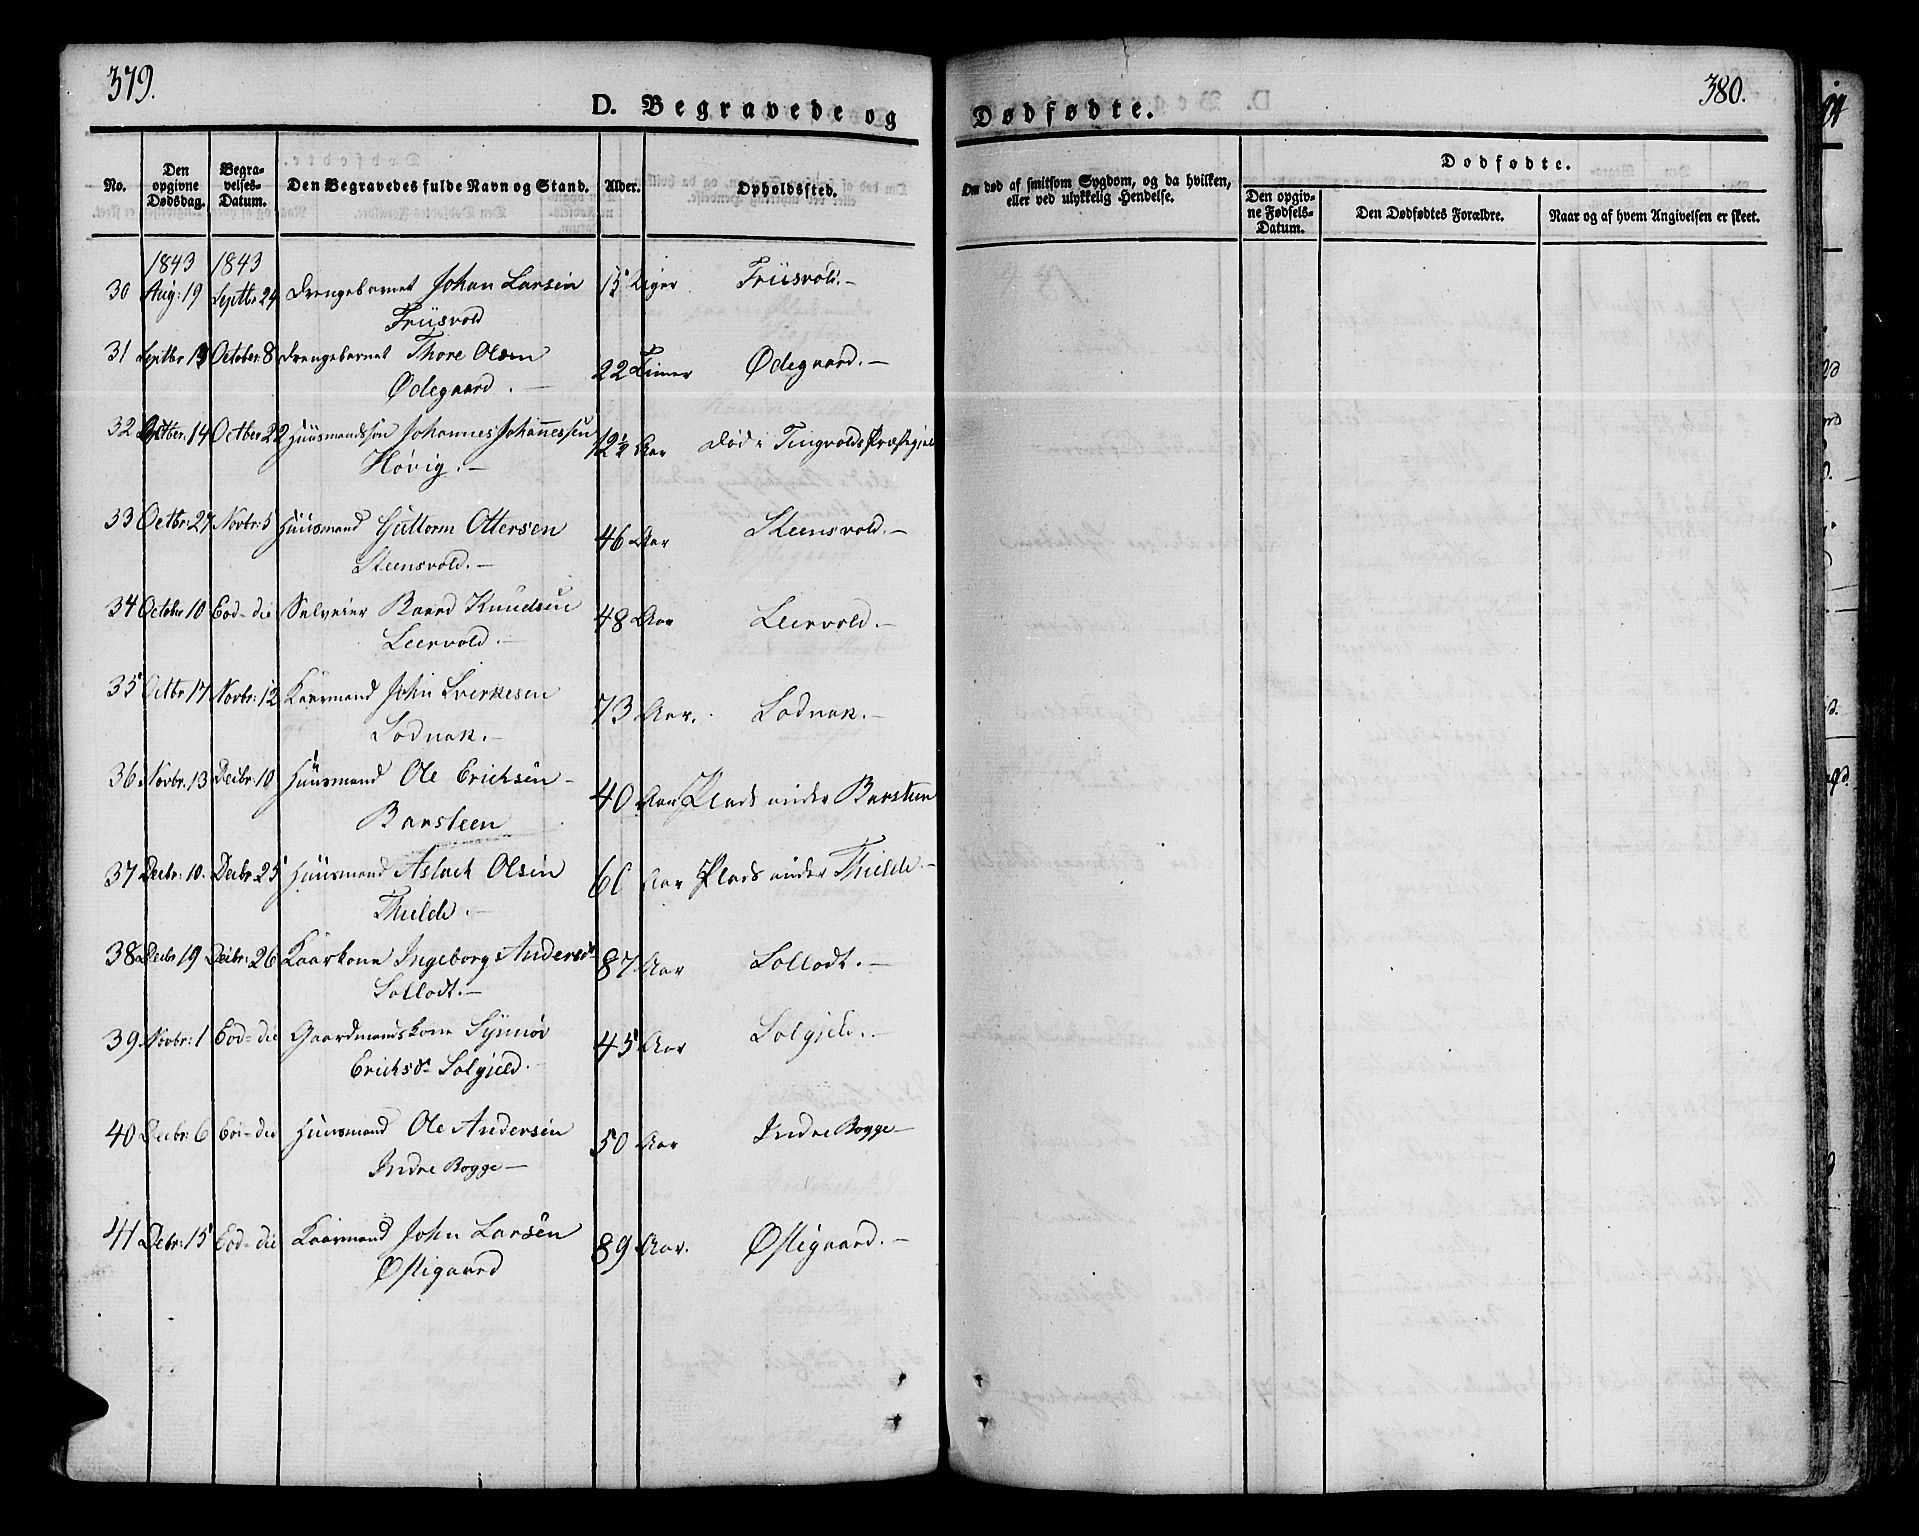 379.
D. Begravede og
No.
Den opgivne Dødsdag.
Begravelses-Datum.
Den Begravedes fulde Navn og Stand.
Alder.
Opholdssted.
1843 1843
30 Aug: 19 Septbr 24 Drengebarnet Johan Larsen 15 Dage Friisvold.-
Friisvold
31 Septbr 13 October 8 Drengebarnet Thore Olsen 22 Timer Ødegaard.-
Ødegaard.-
32 14 Octber 22 Huusmandssøn Johannes Johannessen 12 1/2 Aar Død i Tingvolds Præstegjeld
Høvig.-
33 Octbr: 27 Novbr: 5 Huusmand Guttorm Ottersen 46 Aar Steensvold.-
Steensvold.-
34 Octobr 10 Eod- die Selveier Baard Knudsen 48 Aar Leervold.-
Leervold.-
35 Octbr 17 Novbr: 12 Kaarmand John Sverkesen 73 Aar. Sodnak.-
Sodnak.-
36 Novbr. 13 Decbr: 10 Huusmand Ole Erichsen- 40 Aar Plads under Barsteen
Barsteen
37 Decbr: 10. Decbr: 25 Huusmand Aslack Olsen 60 Aar Plads under Thielde.-
Thielde.-
38 Decbr 19 Decbr: 26 Kaarkone Ingeborg Andersdr 87 Aar Sollodt.-
Sollodt.-
39 Novbr: 1 Eod- die Gaardmandskone Synnør 45 Aar Solgjeld.-
Ericksdr Solgjeld.
40 Decbr: 6 Eod- die Huusmand Ole Andersen 50 Aar Indre Bogge-
Indre Bogge-
41 Debr: 15 Eod- die Kaarmand John Larsen 89 Aar. Østigaard.-
Østigaard
380.
Dødfødte.
Om død af smitsom Sygdom, og da hvilken,
eller ved ulykkelig Hendelse.
Dødfødte.
Den opgivne Fødsels-Datum.
Den Dødfødtes Forældre.
Naar og af hvem Angivelsen er skeet.